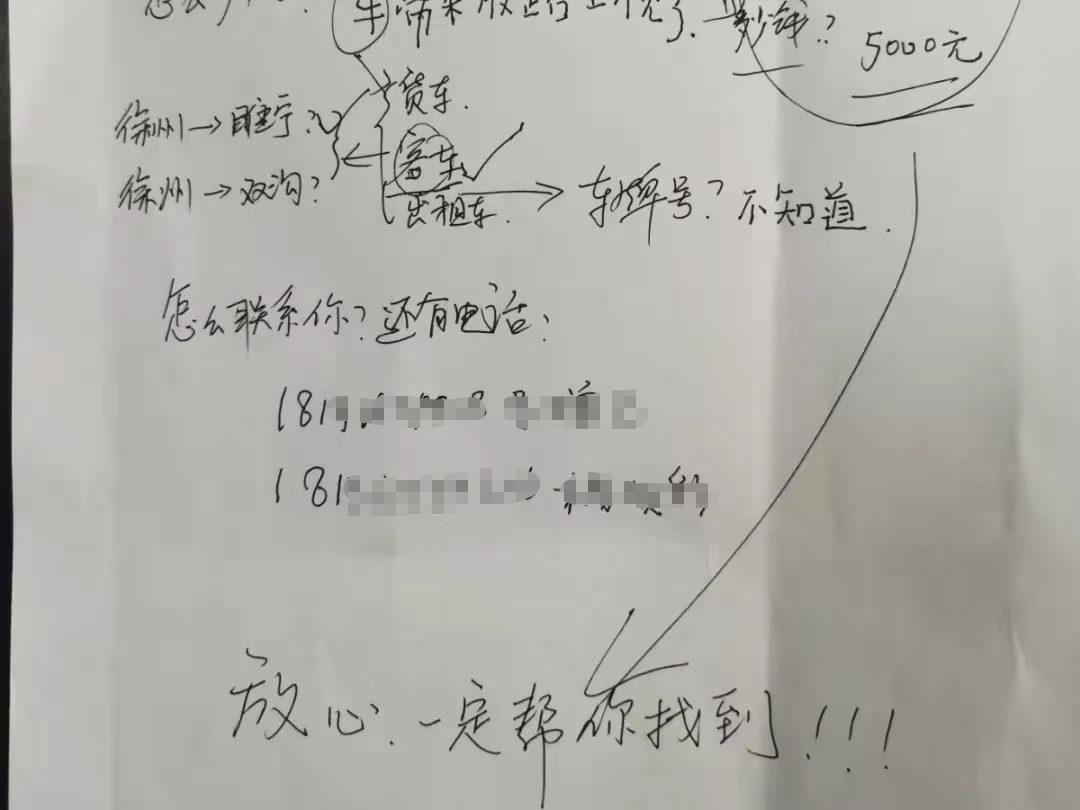 5000元
货车.
徐州→睢宁?
客车✓
徐州→双沟?
出租车. → 车牌号? 不知道.
怎么联系你?还有电话:
181
181
放心.一定帮你找到!!!